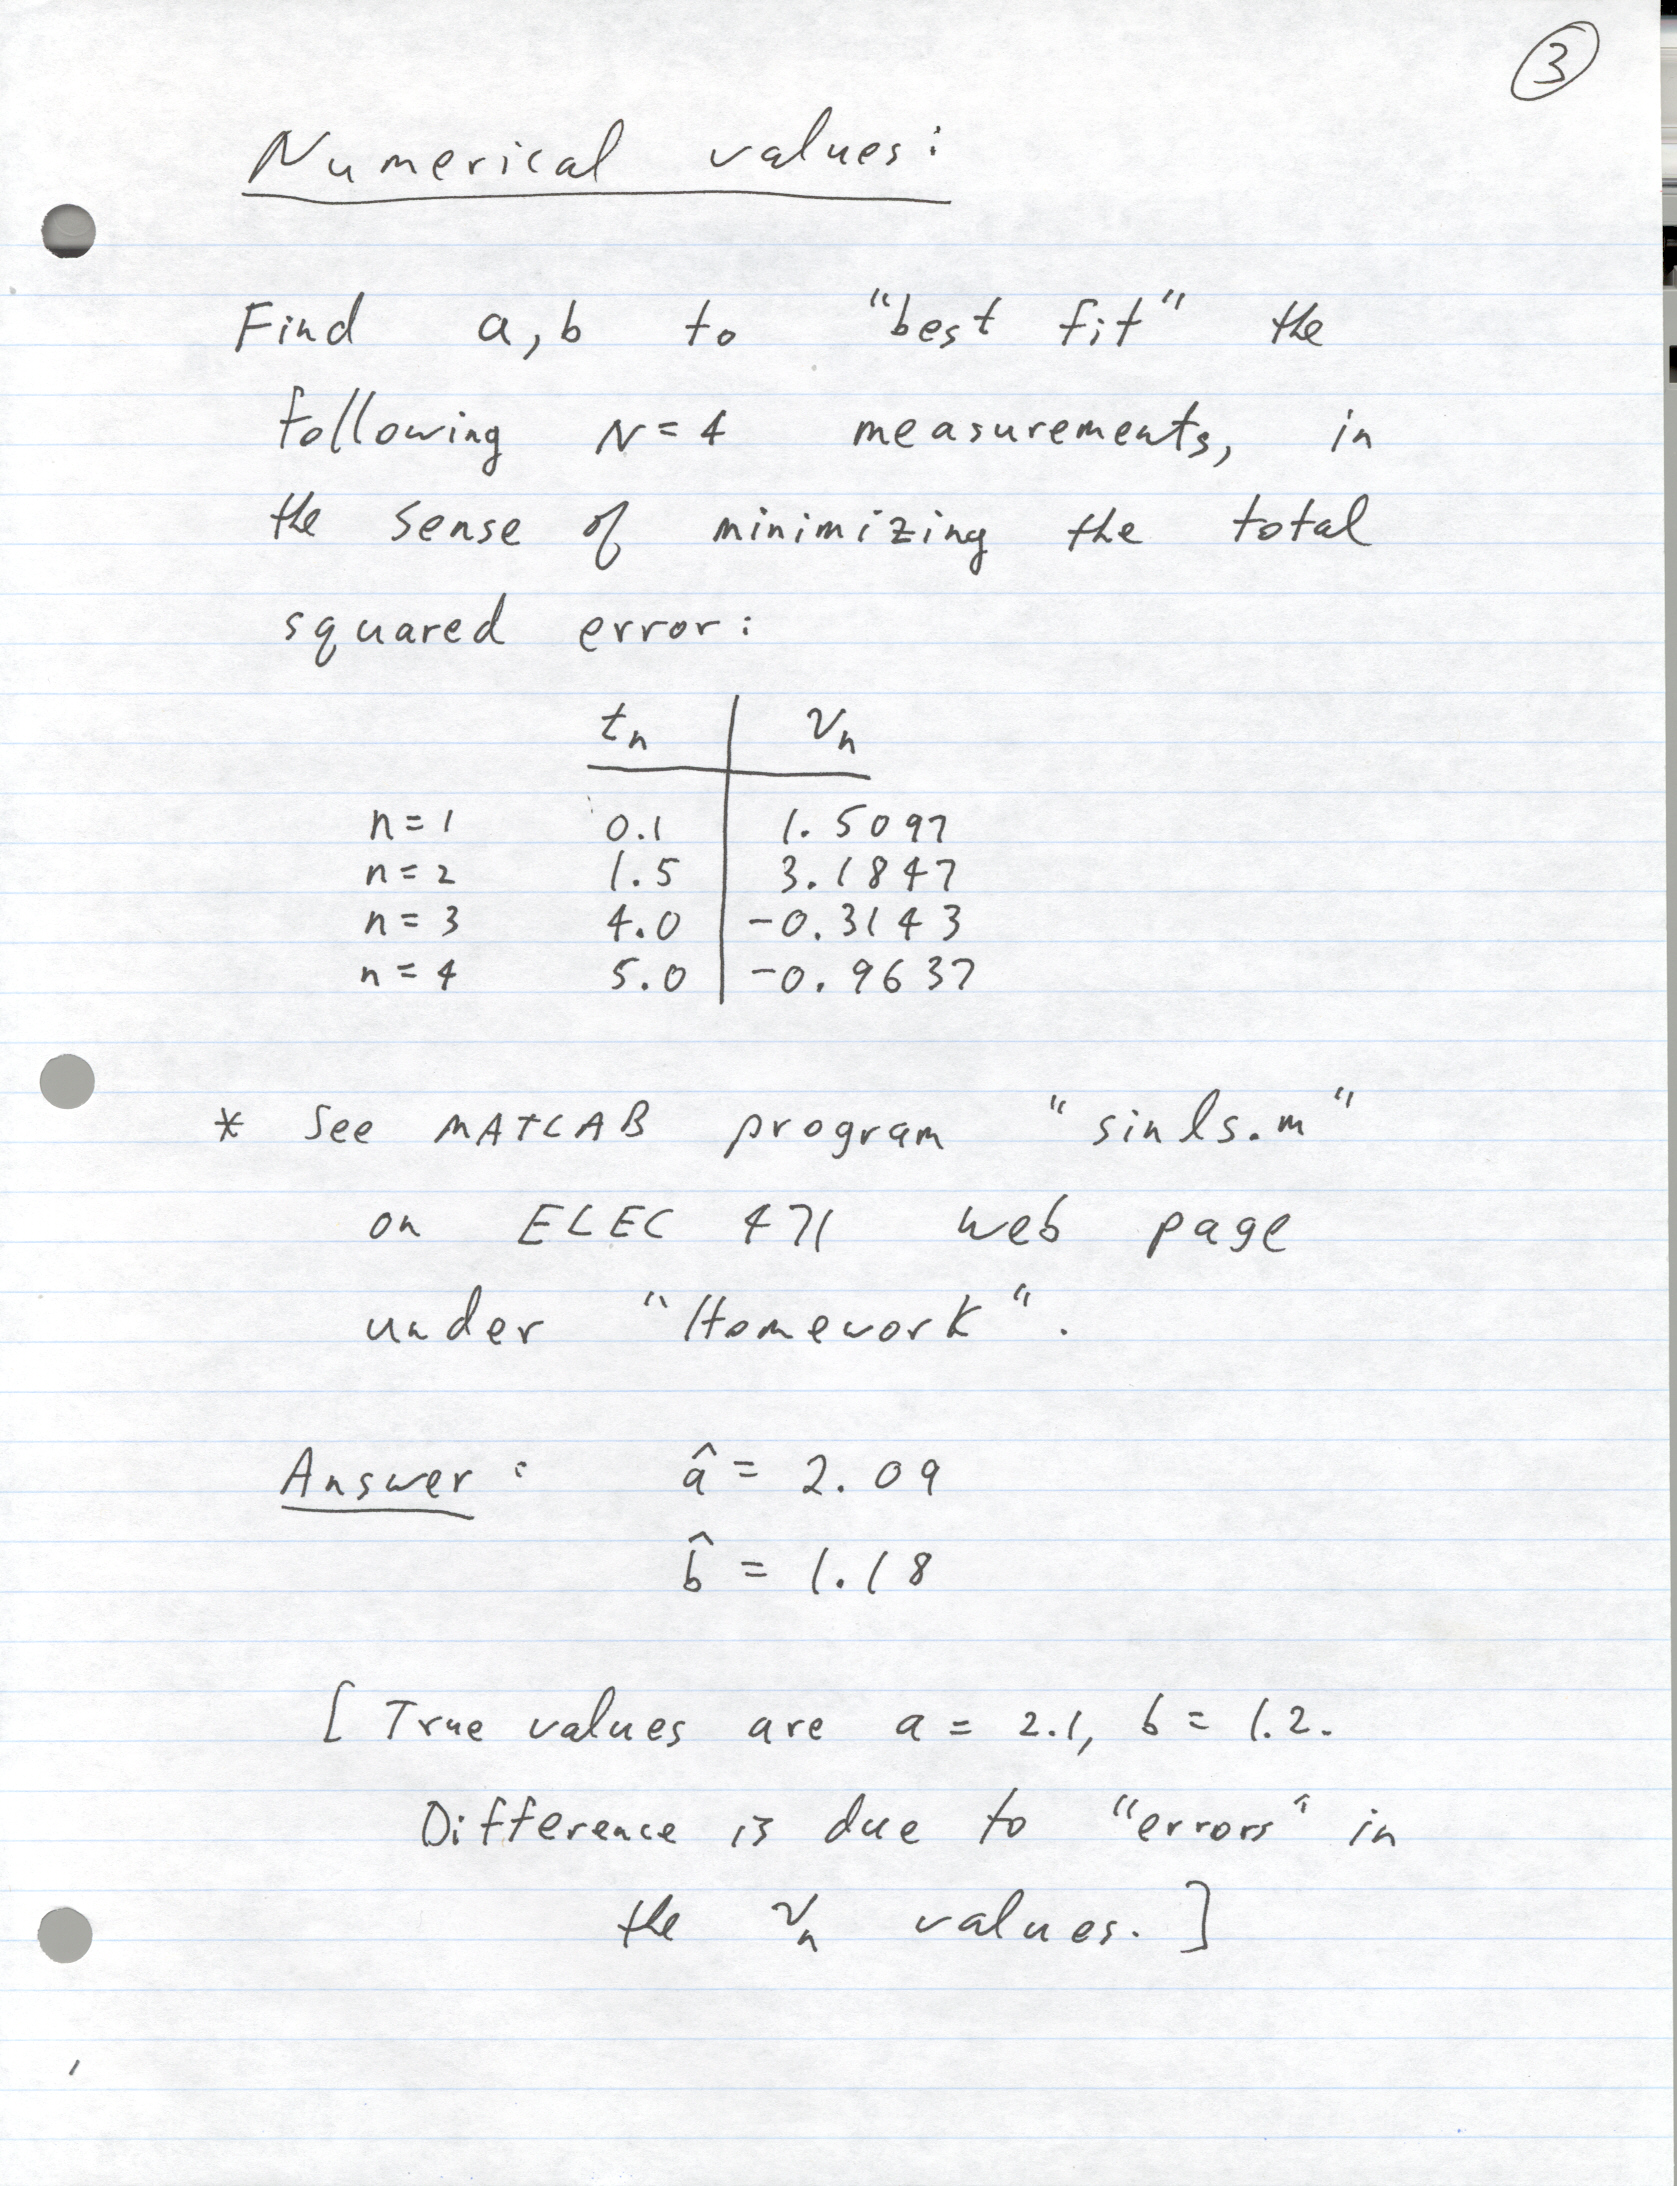 3
Numerical values:
Find a, b to "best fit" the
following N = 4 measurements, in
the sense of minimizing the total
squared error:
tₙ vₙ
n = 1 0.1 1.5097
n = 2 1.5 3.1847
n = 3 4.0 -0.3143
n = 4 5.0 -0.9637
* See MATLAB program "sinls.m"
on ELEC 471 web page
under "Homework".
Answer: â = 2.09
b̂ = 1.18
[ True values are a = 2.1, b = 1.2.
Difference is due to "errors" in
the vₙ values. ]